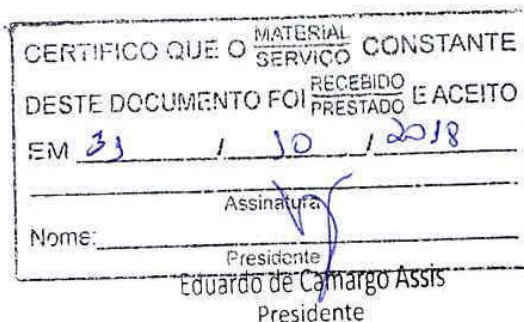 CERTIFICO QUE O MATERIAL SERVIÇO CONSTANTE
DESTE DOCUMENTO FOI RECEBIDO PRESTADO E ACEITO
EM 31 / 10 / 2018
Assinatura
Nome:
Presidente
Eduardo de Camargo Assis
Presidente